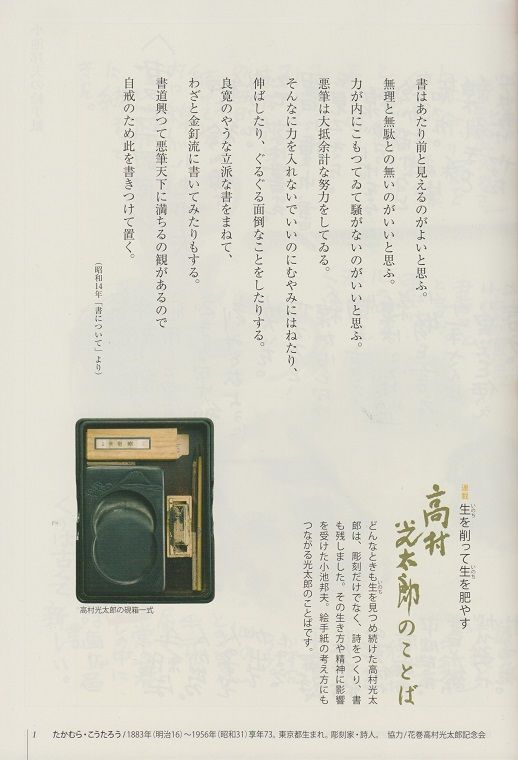 書はあたり前と見えるのがよいと思ふ。
無理と無駄との無いのがいいと思ふ。
力が内にこもつてゐて騒がないのがいいと思ふ。
悪筆は大抵余計な努力をしてゐる。
そんなに力を入れないでいいのにむやみにはねたり、
伸ばしたり、ぐるぐる面倒なことをしたりする。
良寛のやうな立派な書をまねて、
わざと金釘流に書いてみたりもする。
書道興つて悪筆天下に満ちるの観があるので
自戒のため此を書きつけて置く。
(昭和14年「書について」より)
連載 生を削って生を肥やす
いのち いのち
高村光太郎のことば
どんなときも生を見つめ続けた高村光太
いのち
郎は、彫刻だけでなく、詩をつくり、書
も残しました。その生き方や精神に影響
を受けた小池邦夫。絵手紙の考え方にも
つながる光太郎のことばです。
高村光太郎の硯箱一式
1 たかむら・こうたろう/1883年(明治16)〜1956年(昭和31)享年73。東京都生まれ。彫刻家・詩人。 協力/花巻高村光太郎記念会